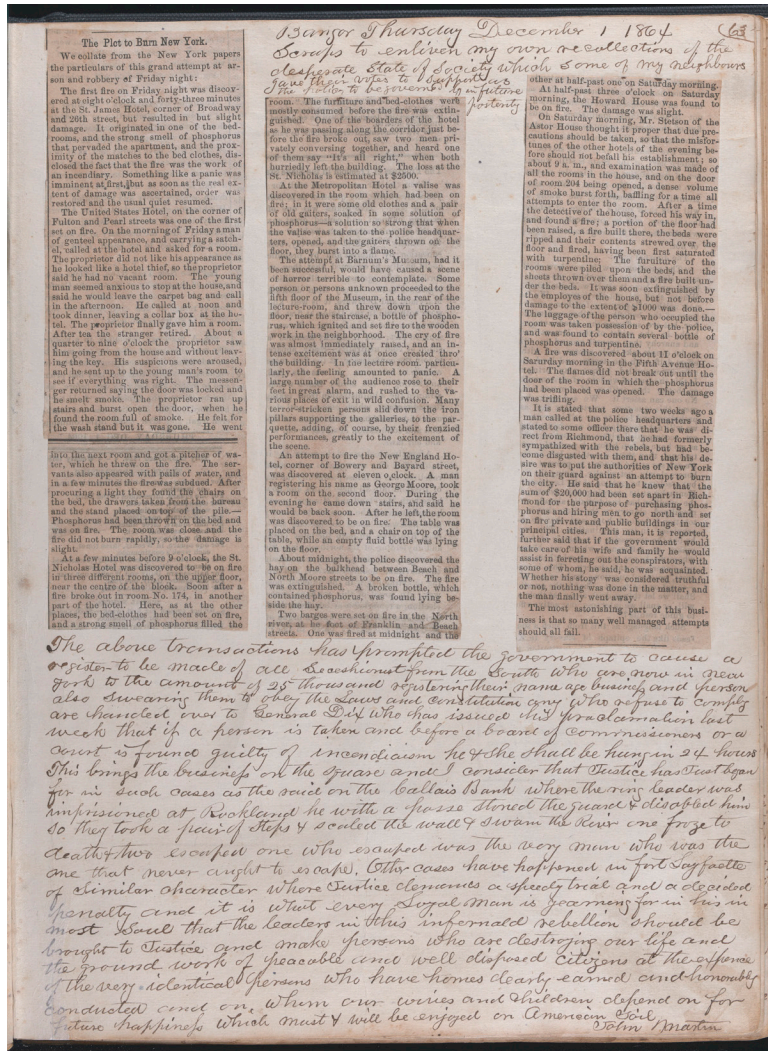 Bangor Thursday December 1 1864
63
Scraps to enliven my own recollections of the
desperate State of Society which some of my neighbours
gave their votes to support
the policy to be governed by in future
posterity
The Plot to Burn New York.
We collate from the New York papers
the particulars of this grand attempt at ar-
son and robbery of Friday night:
The first fire on Friday night was discov-
ered at eight o'clock and forty-three minutes
at the St. James Hotel, corner of Broadway
and 26th street, but resulted in but slight
damage. It originated in one of the bed-
rooms, and the strong smell of phosphorus
that pervaded the apartment, and the prox-
imity of the matches to the bed clothes, dis-
closed the fact that the fire was the work of
an incendiary. Something like a panic was
imminent at first, but as soon as the real ex-
tent of damage was ascertained, order was
restored and the usual quiet resumed.
The United States Hotel, on the corner of
Fulton and Pearl streets was one of the first
set on fire. On the morning of Friday a man
of genteel appearance, and carrying a satch-
el, called at the hotel and asked for a room.
The proprietor did not like his appearance as
he looked like a hotel thief, so the proprietor
said he had no vacant room. The young
man seemed anxious to stop at the house, and
said he would leave the carpet bag and call
in the afternoon. He called at noon and
took dinner, leaving a collar box at the ho-
tel. The proprietor finally gave him a room.
After tea the stranger retired. About a
quarter to nine o'clock the proprietor saw
him going from the house and without leav-
ing the key. His suspicions were aroused,
and he sent up to the young man's room to
see if everything was right. The messen-
ger returned saying the door was locked and
he smelt smoke. The proprietor ran up
stairs and burst open the door, when he
found the room full of smoke. He felt for
the wash stand but it was gone. He went
into the next room and got a pitcher of wa-
ter, which he threw on the fire. The ser-
vants also appeared with pails of water, and
in a few minutes the fire was subdued. After
procuring a light they found the chairs on
the bed, the drawers taken from the bureau
and the stand placed on top of the pile.—
Phosphorus had been thrown on the bed and
was on fire. The room was close and the
fire did not burn rapidly, so the damage is
slight.
At a few minutes before 9 o'clock, the St.
Nicholas Hotel was discovered to be on fire
in three different rooms, on the upper floor,
near the centre of the block. Soon after a
fire broke out in room No. 174, in another
part of the hotel. Here, as at the other
places, the bed-clothes had been set on fire,
and a strong smell of phosphorus filled the
room. The furniture and bed-clothes were
mostly consumed before the fire was extin-
guished. One of the boarders of the hotel
as he was passing along the corridor, just be-
fore the fire broke out, saw two men pri-
vately conversing together, and heard one
of them say "It's all right," when both
hurriedly left the building. The loss at the
St. Nicholas is estimated at $2500.
At the Metropolitan Hotel a valise was
discovered in the room which had been on
fire; in it were some old clothes and a pair
of old gaiters, soaked in some solution of
phosphorus—a solution so strong that when
the valise was taken to the police headquar-
ters, opened, and the gaiters thrown on the
floor, they burst into a flame.
The attempt at Barnum's Museum, had it
been successful, would have caused a scene
of horror terrible to contemplate. Some
person or persons unknown proceeded to the
fifth floor of the Museum, in the rear of the
lecture-room, and threw down upon the
floor, near the staircase, a bottle of phospho-
rus, which ignited and set fire to the wooden
work in the neighborhood. The cry of fire
was almost immediately raised, and an in-
tense excitement was at once created thro'
the building. In the lecture room, particu-
larly, the feeling amounted to panic. A
large number of the audience rose to their
feet in great alarm, and rushed to the va-
rious places of exit in wild confusion. Many
terror-stricken persons slid down the iron
pillars supporting the galleries, to the par-
quette, adding, of course, by their frenzied
performances, greatly to the excitement of
the scene.
An attempt to fire the New England Ho-
tel, corner of Bowery and Bayard street,
was discovered at eleven o'clock. A man
registering his name as George Moore, took
a room on the second floor. During the
evening he came down stairs, and said he
would be back soon. After he left, the room
was discovered to be on fire. The table was
placed on the bed, and a chair on top of the
table, while an empty fluid bottle was lying
on the floor.
About midnight, the police discovered the
hay on the bulkhead between Beach and
North Moore streets to be on fire. The fire
was extinguished. A broken bottle, which
contained phosphorus, was found lying be-
side the hay.
Two barges were set on fire in the North
river, at he foot of Franklin and Beach
streets. One was fired at midnight and the
other at half-past one on Saturday morning.
At half-past three o'clock on Saturday
morning, the Howard House was found to
be on fire. The damage was slight.
On Saturday morning, Mr. Stetson of the
Astor House thought it proper that due pre-
cautions should be taken, so that the misfor-
tunes of the other hotels of the evening be-
fore should not befall his establishment; so
about 9 a. m., and examination was made of
all the rooms in the house, and on the door
of room 204 being opened, a dense volume
of smoke burst forth, baffling for a time all
attempts to enter the room. After a time
the detective of the house, forced his way in,
and found a fire; a portion of the floor had
been raised, a fire built there, the beds were
ripped and their contents strewed over the
floor and fired, having been first saturated
with turpentine; The furuiture of the
rooms were pilod upon the beds, and the
sheets thrown over them and a fire built un-
der the beds. It was soon extinguished by
the employes of the house, but not before
damage to the extent of $1000 was done.—
The luggage of the person who occupied the
room was taken possession of by the police,
and was found to contain several bottle of
phosphorus and turpentine.
A fire was discovered about 11 o'clock on
Saturday morning in the Fifth Avenue Ho-
tel. The flames did not break out until the
door of the room in which the phosphorus
had been placed was opened. The damage
was trifling.
It is stated that some two weeks ago a
man called at the police headquarters and
stated to some officer there that he was di-
rect from Richmond, that he had formerly
sympathized with the rebels, but had be-
come disgusted with them, and that his de-
sire was to put the authorities of New York
on their guard against an attempt to burn
the city. He said that he knew that the
sum of $20,000 had been set apart in Rich-
mond for the purpose of purchasing phos-
phorus and hiring men to go north and set
on fire private and public buildings in our
principal cities. This man, it is reported,
further said that if the government would
take care of his wife and family he would
assist in ferreting out the conspirators, with
some of whom, he said, he was acquainted.
Whether his story was considered truthful
or not, nothing was done in the matter, and
the man finally went away.
The most astonishing part of this busi-
ness is that so many well managed attempts
should all fail.
The above transactions has prompted the government to cause a
register to be made of all Seceshionist from the South who are now in new
york to the amount of 25 thousand registering their name age business and person
also swearing them to obey the Laws and constitution any who refuse to comply
are handed over to General Dix who has issued his proclamation last
week that if a person is taken and before a board of commissioners or a
court is found guilty of incendiaism he & she shall be hung in 24 hours
This brings the business on the square and I consider that Justice has Just began
for in such cases as the raid on the Callais Bank where the ring leader was
imprisioned at Rockland he with a posse stoned the guard & disabled him
so they took a pair of Steps & scaled the wall & swam the River one froze to
death & two escaped one who escaped was the very man who was the
one that never aught to escape. Other cases have happened in fort Layfaette
of Similar character where Justice demands a speedy trial and a decided
penalty and it is what every Loyal man is yearning for in his in
most Soul that the leaders in this infernald rebellion should be
brought to Justice and make persons who are destroying our life and
the ground work of peacable and well disposed citizens at the expense
of the very identical persons who have homes dearly earned and honorably
conducted and on whom our wives and children depend on for
future happiness which must & will be enjoyed on American Soil
John Martin